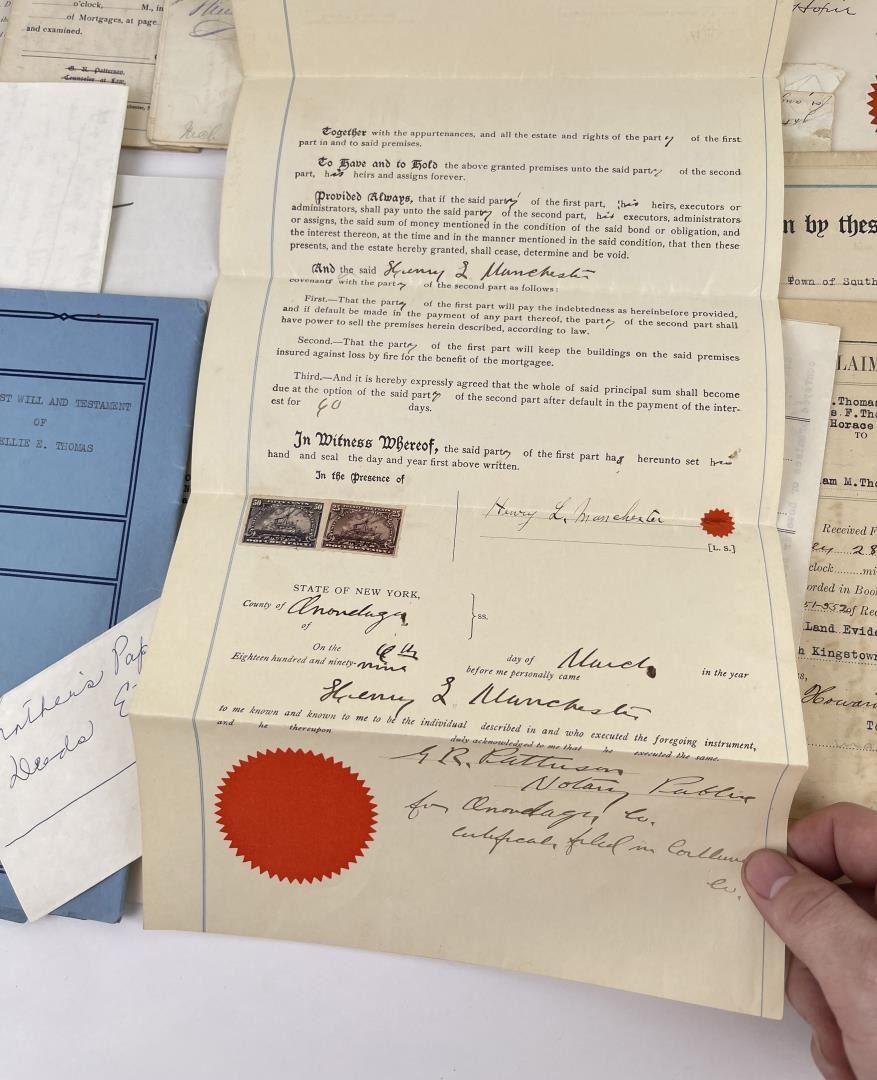 o'clock, M., in
of Mortgages, at page
and examined.
G. R. Patterson,
Counselor at Law,
Together with the appurtenances, and all the estate and rights of the party of the first
part in and to said premises.
To Have and to Hold the above granted premises unto the said party of the second
part, his heirs and assigns forever.
Provided Always, that if the said party of the first part, his heirs, executors or
administrators, shall pay unto the said party of the second part, his executors, administrators
or assigns, the said sum of money mentioned in the condition of the said bond or obligation, and
the interest thereon, at the time and in the manner mentioned in the said condition, that then these
presents, and the estate hereby granted, shall cease, determine and be void.
And the said Henry L Manchester
covenants with the party of the second part as follows:
First.—That the party of the first part will pay the indebtedness as hereinbefore provided,
and if default be made in the payment of any part thereof, the party of the second part shall
have power to sell the premises herein described, according to law.
Second.—That the party of the first part will keep the buildings on the said premises
insured against loss by fire for the benefit of the mortgagee.
Third.—And it is hereby expressly agreed that the whole of said principal sum shall become
due at the option of the said party of the second part after default in the payment of the inter-
est for 60 days.
In Witness Whereof, the said party of the first part has hereunto set his
hand and seal the day and year first above written.
In the Presence of
50 50
25 25
Henry L. Manchester
[L. S.]
STATE OF NEW YORK,
County of Onondaga
of
ss.
On the 6th day of March in the year
Eighteen hundred and ninety-nine before me personally came
Henry L Manchester
to me known and known to me to be the individual described in and who executed the foregoing instrument,
and he thereupon duly acknowledged to me that he executed the same.
G R. Patterson
Notary Public
for Onondaga Co.
Certificate filed in Cortland
Co.
ST WILL AND TESTAMENT
OF
ELLIE E. THOMAS
Deeds
n by thes
Town of South
LAIM
.Thomas
s F.Th
Horace
TO
am M.Tho
Received F
28
clock mi
orded in Boo
of Rec
Land Evide
h Kingstown
Howar
To